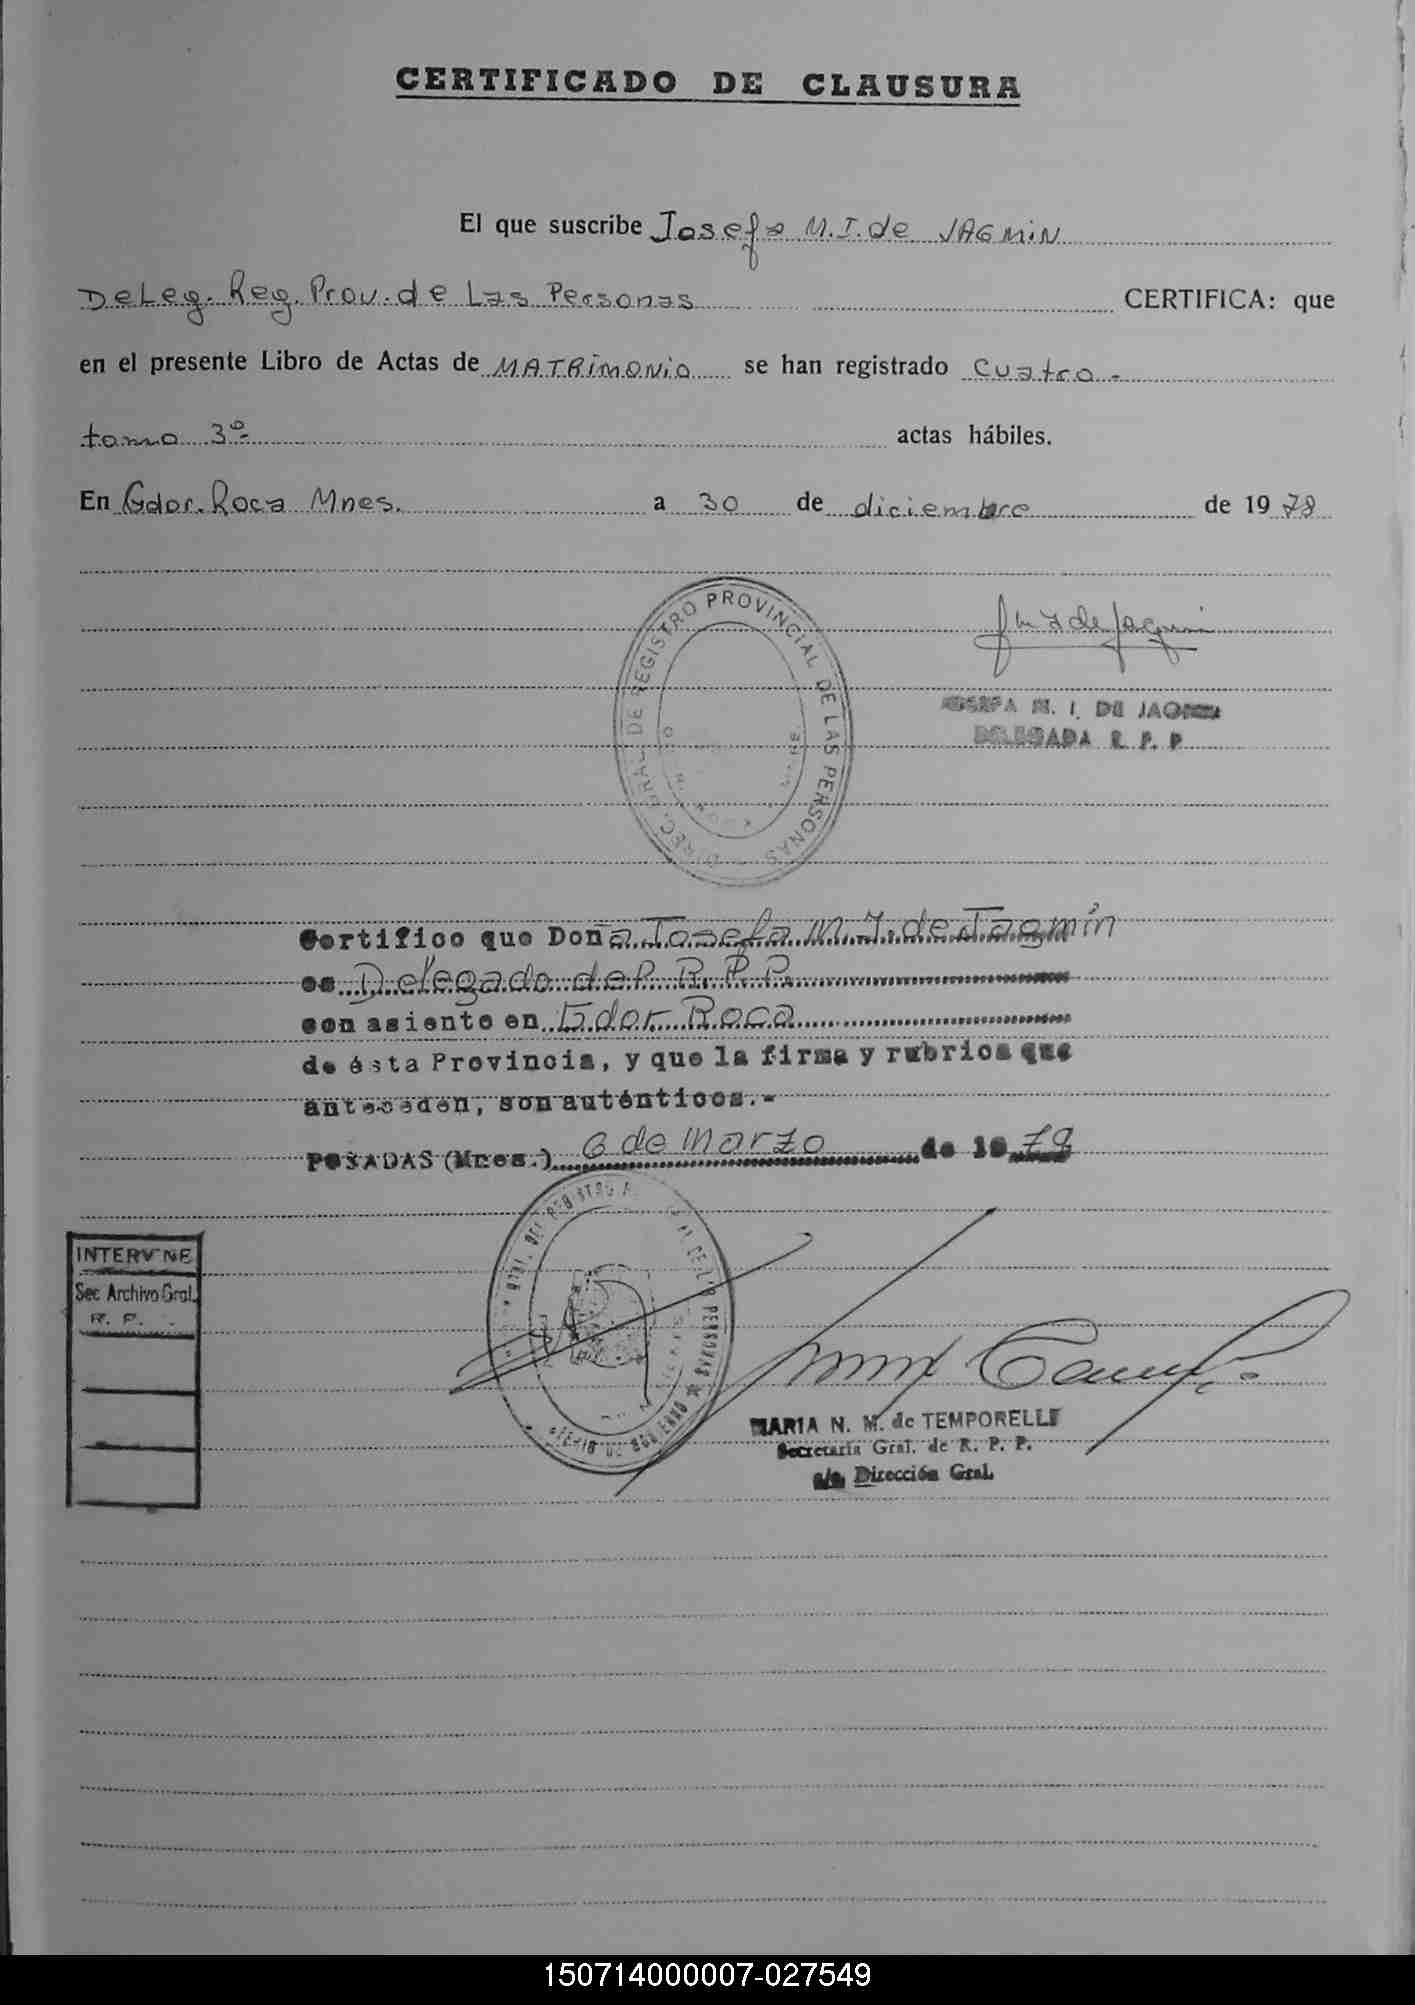 CERTIFICADO DE CLAUSURA
El que suscribe Josefa M. I. de JAGMIN
DeLeg. Reg. Prov. de Las Personas CERTIFICA: que
en el presente Libro de Actas de MATRimoNio se han registrado cuatro -
tomo 3º- actas hábiles.
En Gdor. Roca Mnes. a 30 de diciembre de 1978
DIREC. GRAL. DE REGISTRO PROVINCIAL DE LAS PERSONAS
JOSEFA M. I. DE JAGMIN
DELEGADA R. P. P.
Certifico que Doña Josefa M. I. de Jagmín
es Delegado del R. P. P.
con asiento en Gdor Roca
de ésta Provincia, y que la firma y rubrica que
anteceden, son auténticos.-
POSADAS (Mnes.) 6 de marzo de 1979
INTERVINE
Sec Archivo Gral.
R. P.
MARIA N. M. de TEMPORELLI
Secretaria Gral. de R. P. P.
a/c Dirección Gral.
150714000007-027549